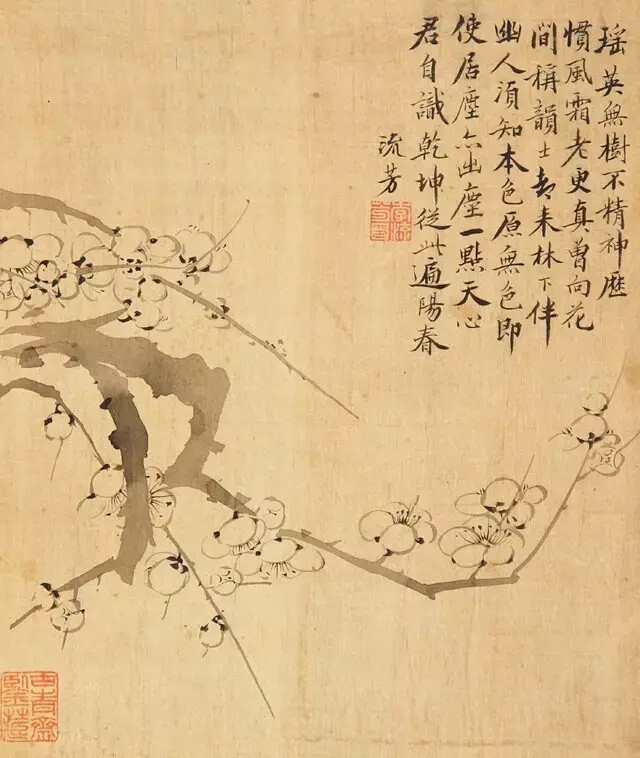 瑶英無樹不精神歷
慣風霜老更真曾向花
間稱韻士來林下伴
幽人須知本色原無色即
使居塵亦出塵一點天心
君自識乾坤從此遍陽春
流芳